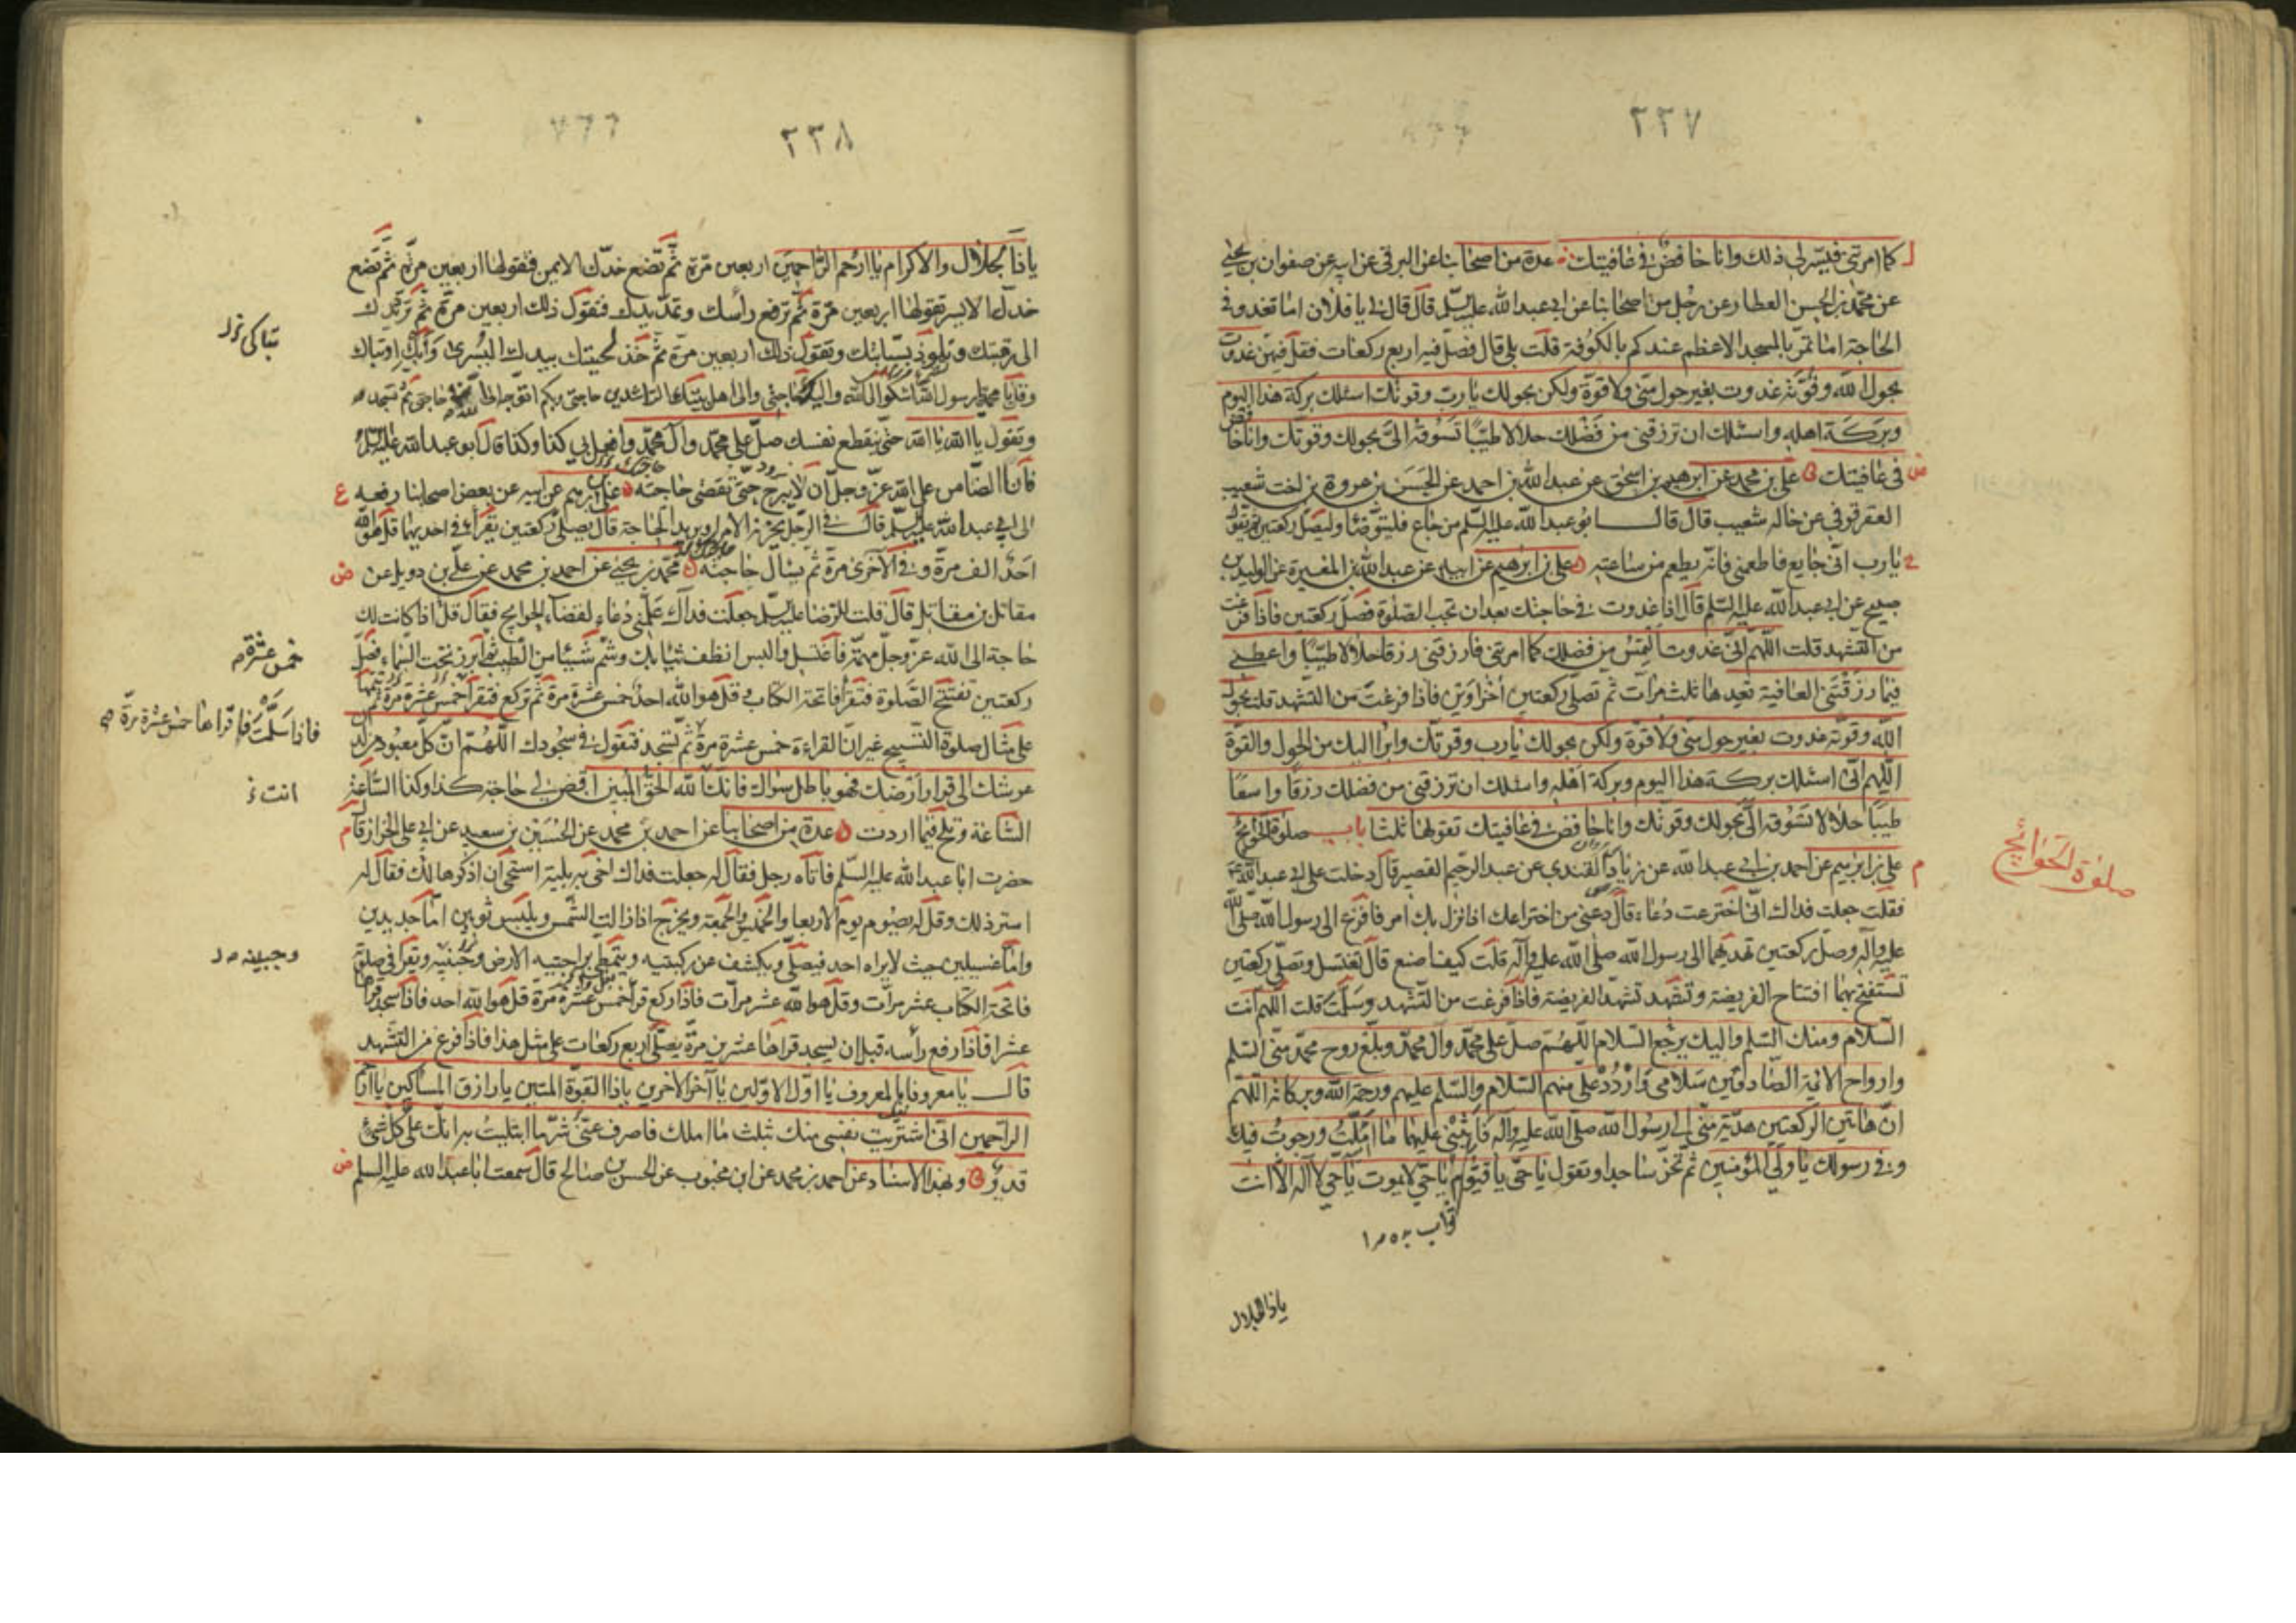 ٢٣٧
كما امرتنى فيسر لى ذلك وانا خافض فى عافيتك عدة من اصحابنا عن البرقى عن ابيه عن صفوان بن يحيى
عن محمد بن الحسن العطار عن رجل من اصحابنا عن ابى عبد الله عليه السلم قال قال لى يا فلان اما تغدو فى
الحاجة اما تمر بالمسجد الاعظم عندكم بالكوفة قلت بلى قال فصل فيه اربع ركعات فقل فيهن غدوت
بحول الله وقوته غدوت بغير حول منى ولا قوة ولكن بحولك يا رب وقوتك اسئلك بركة هذا اليوم
وبركة اهله واسئلك ان ترزقنى من فضلك حلالا طيبا تسوقه الى بحولك وقوتك وانا خافض
فى عافيتك على بن محمد عن ابرهيم بن اسحق عن عبد الله بن احمد عن الحسن بن عروة بن اخت شعيب
العقرقوفى عن خاله شعيب قال قال ابو عبد الله عليه السلم من جاع فليتوضأ وليصل ركعتين ثم يقول
يا رب انى جايع فاطعمنى فانه يطعم من ساعته على بن ابرهيم عن ابيه عن عبد الله بن المغيرة عن الوليد بن
صبيح عن ابى عبد الله عليه السلم قال اذا غدوت فى حاجتك بعد ان تجب الصلوة فصل ركعتين فاذا فرغت
من التشهد قلت اللهم انى غدوت التمس من فضلك كما امرتنى فارزقنى رزقا حلالا طيبا واعطنى
فيما رزقتنى العافية تعيدها ثلث مرات ثم تصلى ركعتين اخراوين فاذا فرغت من التشهد قلت بحول
الله وقوته غدوت بغير حول منى ولا قوة ولكن بحولك يا رب وقوتك وابرأ اليك من الحول والقوة
اللهم انى اسئلك بركة هذا اليوم وبركة اهله واسئلك ان ترزقنى من فضلك رزقا واسعا
طيبا حلالا تسوقه الى بحولك وقوتك وانا خافض فى عافيتك تقولها ثلثا باب صلوة الحوائج
صلوة الحوائج
على بن ابرهيم عن احمد بن ابى عبد الله عن زياد القندى عن عبد الرحيم القصير قال دخلت على ابى عبد الله
فقلت جعلت فداك انى اخترعت دعاء قال دعنى من اختراعك اذا نزل بك امر فافزع الى رسول الله صلى الله
عليه وآله وصل ركعتين تهديهما الى رسول الله صلى الله عليه وآله قلت كيف اصنع قال تغتسل وتصلى ركعتين
تستفتح بهما افتتاح الفريضة وتشهد تشهد الفريضة فاذا فرغت من التشهد وسلمت قلت اللهم انت
السلام ومنك السلم واليك يرجع السلام اللهم صل على محمد وآل محمد وبلغ روح محمد منى السلم
وارواح الائمة الصادقين سلامى واردد على منهم السلام والسلم عليهم ورحمة الله وبركاته اللهم
ان هاتين الركعتين هدية منى الى رسول الله صلى الله عليه وآله فاثبنى عليهما ما املت ورجوت فيك
وفى رسولك يا ولى المؤمنين ثم تخر ساجدا وتقول يا حى يا قيوم يا حى لا يموت يا حى لا اله الا انت
يا ذا الجلال
٢٣٨
يا ذا الجلال والاكرام يا ارحم الراحمين اربعين مرة ثم تضع خدك الايمن فتقولها اربعين مرة ثم تضع
خدك الايسر تقولها اربعين مرة ثم ترفع رأسك وتمد يدك فتقول ذلك اربعين مرة ثم ترد يدك
الى رقبتك وتلوذ بسبابتك وتقول ذلك اربعين مرة ثم خذ لحيتك بيدك اليسرى وابك او تباك
وقل يا محمد يا رسول الله اشكو الى الله واليك حاجتى والى اهل بيتك الراشدين حاجتى وبكم اتوجه الى الله فى حاجتى ثم تسجد
وتقول يا الله يا الله حتى ينقطع نفسك صل على محمد وآل محمد وافعل بى كذا وكذا قال ابو عبد الله عليه السلم
فانا الضامن على الله عز وجل ان لا يبرح حتى تقضى حاجته على بن ابرهيم عن ابيه عن بعض اصحابنا رفعه
الى ابى عبد الله عليه السلم قال فى الرجل يحزنه الامر او يريد الحاجة قال يصلى ركعتين يقرأ فى احديهما قل هو الله
احد الف مرة وفى الاخرى مرة ثم يسأل حاجته محمد بن يحيى عن احمد بن محمد عن على بن دويل عن
مقاتل بن مقاتل قال قلت للرضا عليه السلم جعلت فداك علمنى دعاء لقضاء الحوايج فقال قل اذا كانت لك
حاجة الى الله عز وجل مهمة فاغتسل والبس انظف ثيابك وشم شيئا من الطيب ثم ابرز تحت السماء فصل
ركعتين تفتتح الصلوة فتقرأ فاتحة الكتاب وقل هو الله احد خمس عشرة مرة ثم تركع فتقرأ خمس عشرة مرة ثم تتمها
على مثال صلوة التسبيح غير ان القراءة خمس عشرة مرة ثم تسجد فتقول فى سجودك اللهم ان كل معبود من لدن
عرشك الى قرار ارضك فهو باطل سواك فانك الله الحق المبين اقض لى حاجة كذا وكذا الساعة
الساعة وتلح فيما اردت عدة من اصحابنا عن احمد بن محمد عن الحسين بن سعيد عن ابى على الخزاز قال
حضرت ابا عبد الله عليه السلم فاتاه رجل فقال له جعلت فداك اخى به بلية استحيى ان اذكرها لك فقال له
استر ذلك وقل له يصوم يوم الاربعا والخميس والجمعة ويخرج اذا زالت الشمس ويلبس ثوبين اما جديدين
واما غسيلين حيث لا يراه احد فيصلى ويكشف عن ركبتيه ويتمطى براحتيه الارض وجنبيه ويقرأ فى صلوته
فاتحة الكتاب عشر مرات وقل هو الله عشر مرات فاذا ركع قرأ خمس عشرة مرة قل هو الله احد فاذا سجد قرأها
عشرا فاذا رفع رأسه قبل ان يسجد قراها عشرين مرة يصلى اربع ركعات على مثل هذا فاذا فرغ من التشهد
قال يا معروفا بالمعروف يا اول الاولين يا آخر الاخرين يا ذا القوة المتين يا رازق المساكين يا ارحم
الراحمين انى اشتريت نفسى منك بثلث ما املك فاصرف عنى شر ما ابتليت به انك على كل شئ
قدير وبهذا الاسناد عن احمد بن محمد عن ابن محبوب عن الحسن بن صالح قال سمعت ابا عبد الله عليه السلم
خمس عشرة
فاذا سلمت فاقراها خمس عشرة مرة
انت
وجبينه